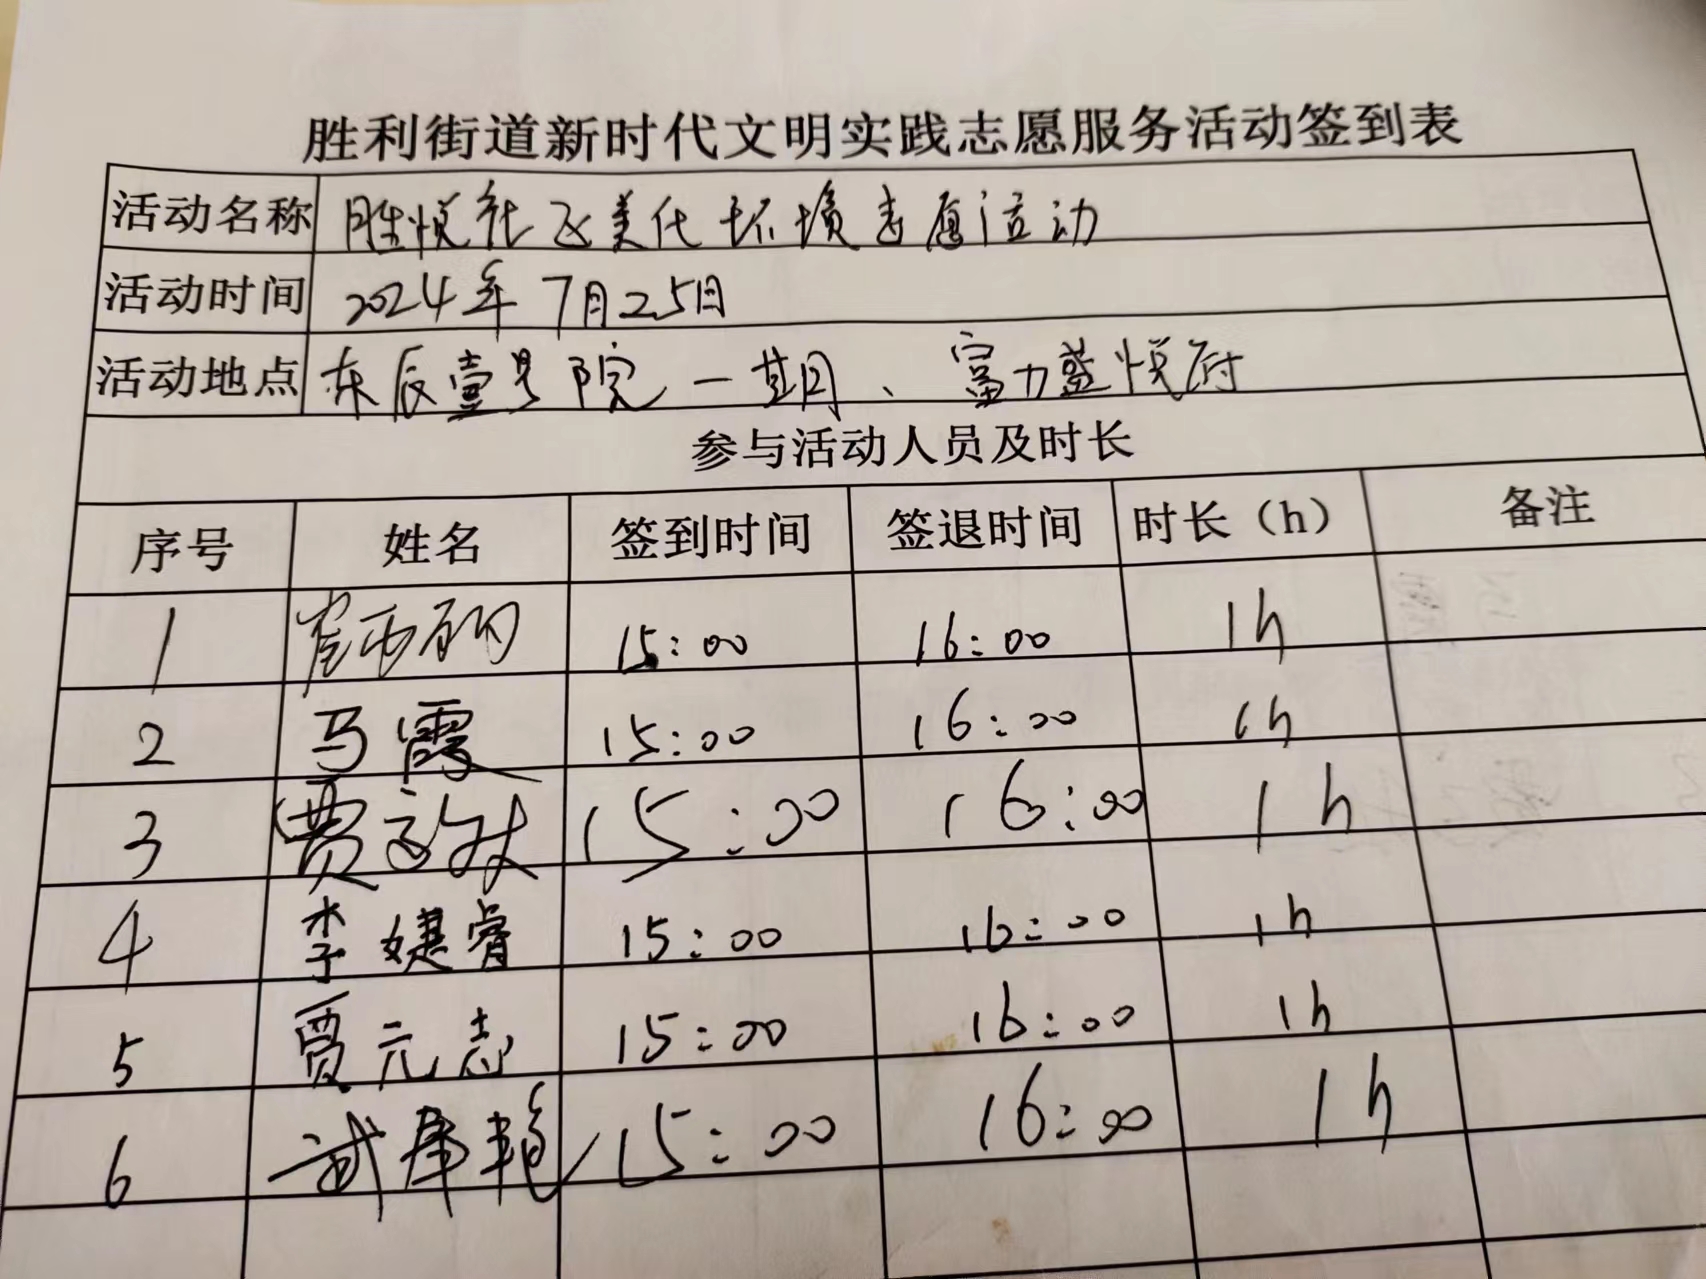 胜利街道新时代文明实践志愿服务活动签到表
活动名称 胜悦社区美化环境志愿活动
活动时间 2024年7月25日
活动地点 东辰壹号院一期、富力盛悦府
参与活动人员及时长
序号 姓名 签到时间 签退时间 时长(h) 备注
1 崔 15:00 16:00 1h
2 马霞 15:00 16:00 1h
3 贾 15:00 16:00 1h
4 李婕睿 15:00 16:00 1h
5 贾元志 15:00 16:00 1h
6 武 艳 15:00 16:00 1h